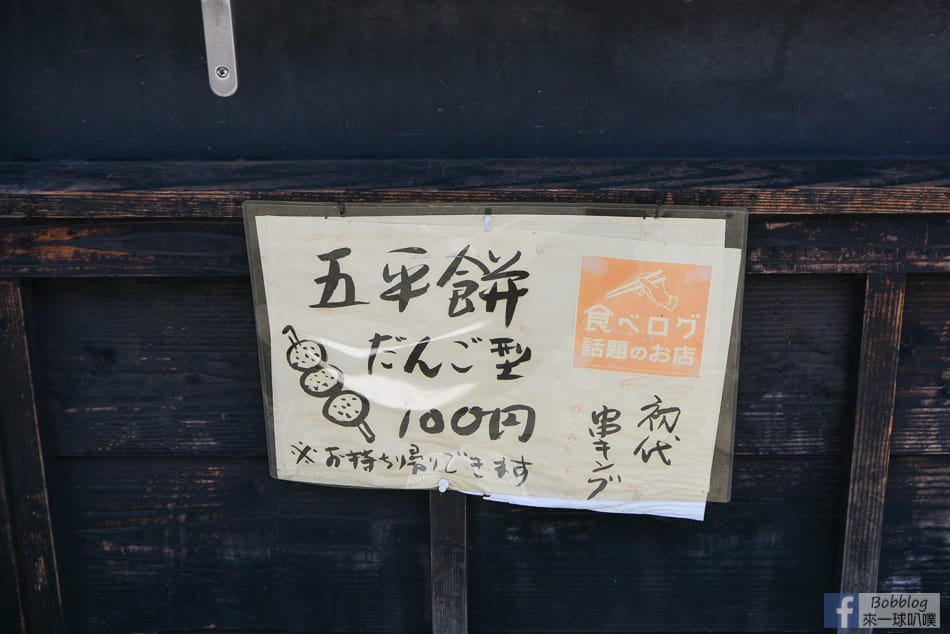 五平餅
だんご型
100円
※お持ち帰りできます
食べログ
話題のお店
初代
串キング
Bobblog
來一球叭噗